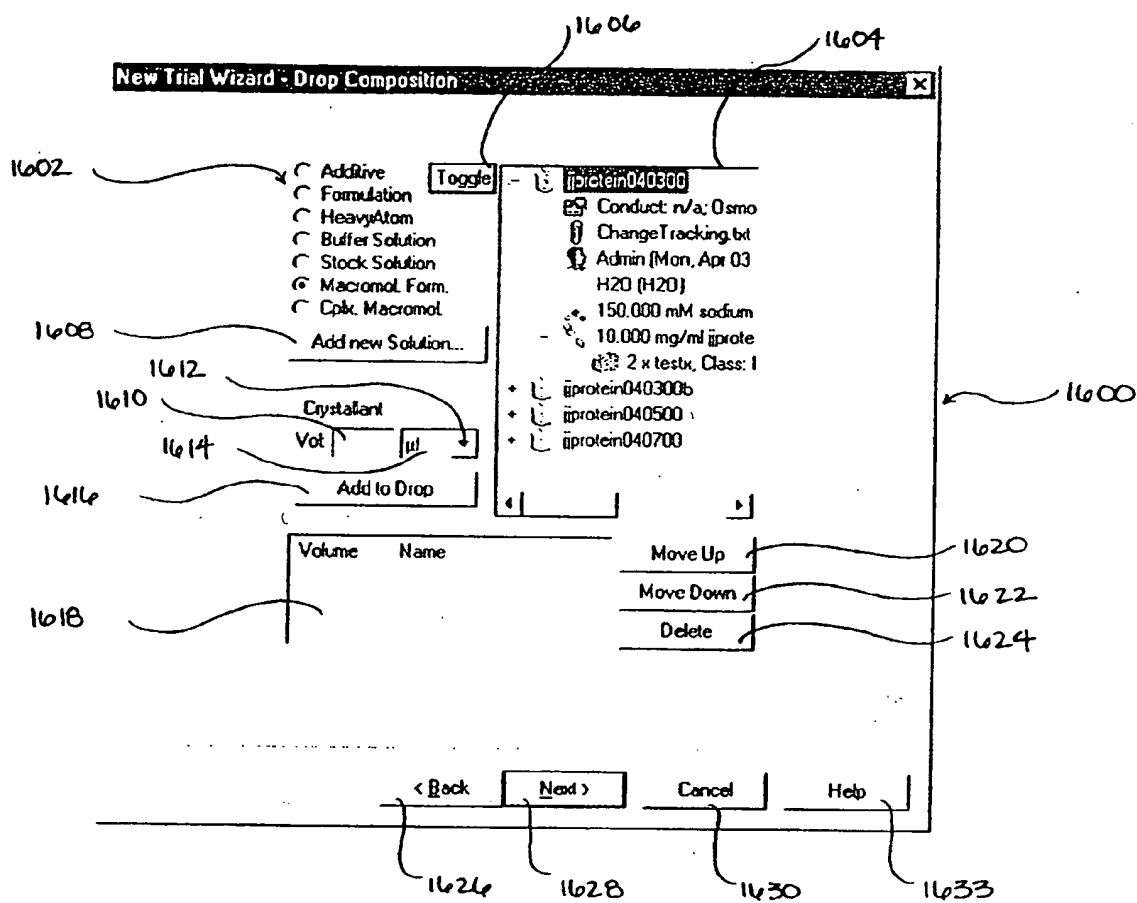 1606
1604
New Trial Wizard - Drop Composition
1602
Additive
Toggle
Formulation
HeavyAtom
Buffer Solution
Stock Solution
Macromol. Form.
Cplx. Macromol.
1608
Add new Solution...
jjprotein040300
Conduct: n/a; Osmo
ChangeTracking.txt
Admin (Mon, Apr 03
H2O (H2O)
150.000 mM sodium
10.000 mg/ml jjprote
2 x testx, Class: I
jjprotein040300b
jjprotein040500
jjprotein040700
1600
1612
1610
Crystallant
Vol
µl
1614
1616
Add to Drop
Volume Name
1618
Move Up
1620
Move Down
1622
Delete
1624
< Back
Next >
Cancel
Help
1626
1628
1630
1633